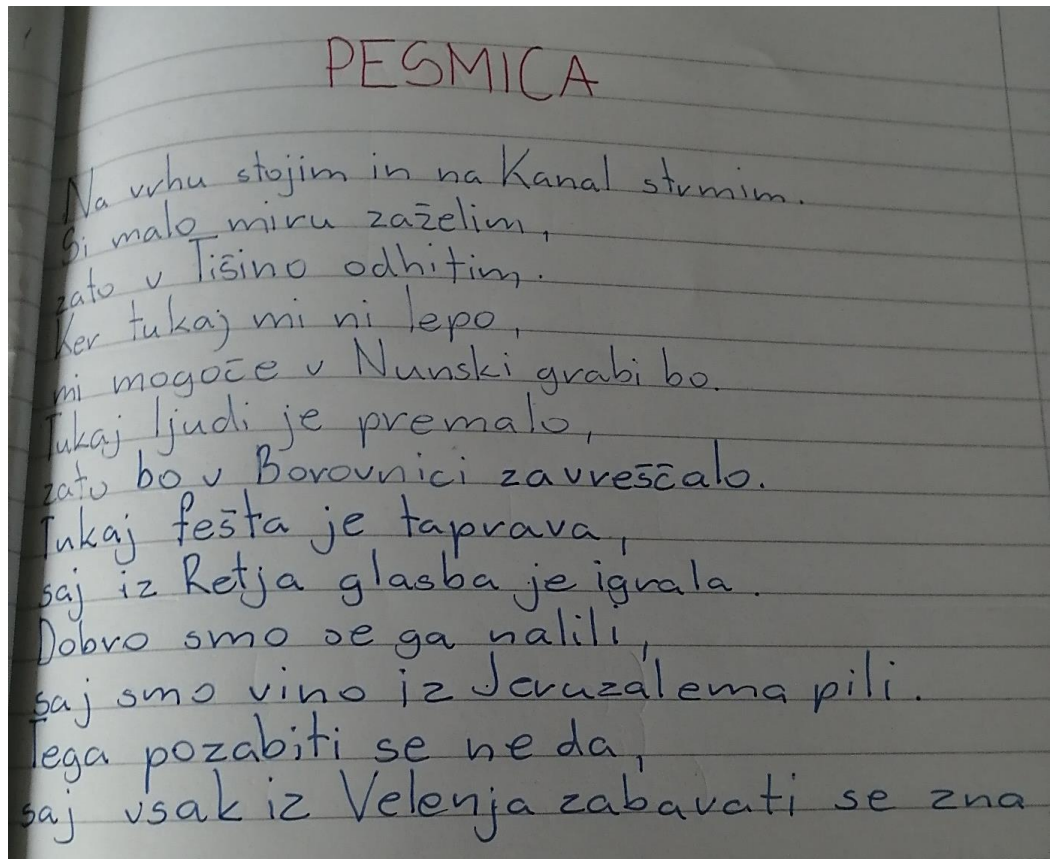 PESMICA
Na vrhu stojim in na Kanal strmim.
Si malo miru zaželim,
zato v Tišino odhitim.
Ker tukaj mi ni lepo,
mi mogoče v Nunski grabi bo.
Tukaj ljudi je premalo,
zato bo v Borovnici zavreščalo.
Tukaj fešta je taprava,
saj iz Retja glasba je igrala.
Dobro smo se ga nalili,
saj smo vino iz Jeruzalema pili.
Tega pozabiti se ne da,
saj vsak iz Velenja zabavati se zna